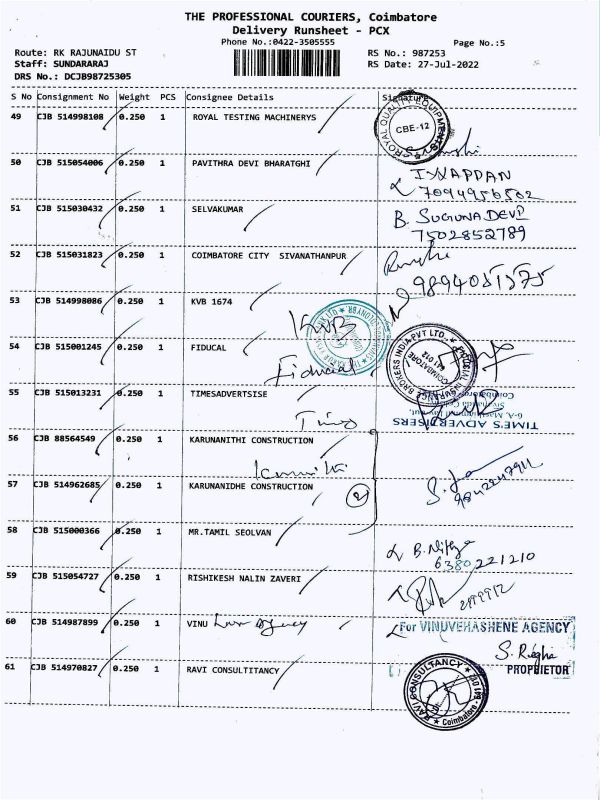 THE PROFESSIONAL COURIERS, Coimbatore
Delivery Runsheet - PCX
Phone No.:0422-3505555
Page No.:5
Route: RK RAJUNAIDU ST
RS No.: 987253
Staff: SUNDARARAJ
RS Date: 27-Jul-2022
DRS No.: DCJB98725305
S No Consignment No Weight PCS Consignee Details Signature
49 CJB 514998108 0.250 1 ROYAL TESTING MACHINERYS
ROYAL QUALITY EQUIPMENTS
CBE-12
50 CJB 515054006 0.250 1 PAVITHRA DEVI BHARATGHI
7094956502
51 CJB 515030432 0.250 1 SELVAKUMAR
B. SUGUNA DEVI
7502852789
52 CJB 515031823 0.250 1 COIMBATORE CITY SIVANATHANPUR
53 CJB 514998086 0.250 1 KVB 1674
KVB
54 CJB 515001245 0.250 1 FIDUCAL
Fiducial
INSURANCE BROKERS INDIA PVT LTD.
COIMBATORE
641 012
55 CJB 515013231 0.250 1 TIMESADVERTSISE
Times
TIME'S ADVERTISERS
56 CJB 88564549 0.250 1 KARUNANITHI CONSTRUCTION
57 CJB 514962685 0.250 1 KARUNANIDHE CONSTRUCTION
2
58 CJB 515000366 0.250 1 MR.TAMIL SEOLVAN
B. Nithya
6380221210
59 CJB 515054727 0.250 1 RISHIKESH NALIN ZAVERI
60 CJB 514987899 0.250 1 VINU
For VINUVEHASHENE AGENCY
PROPRIETOR
61 CJB 514970827 0.250 1 RAVI CONSULTITANCY
RAVI CONSULTANCY
Coimbatore